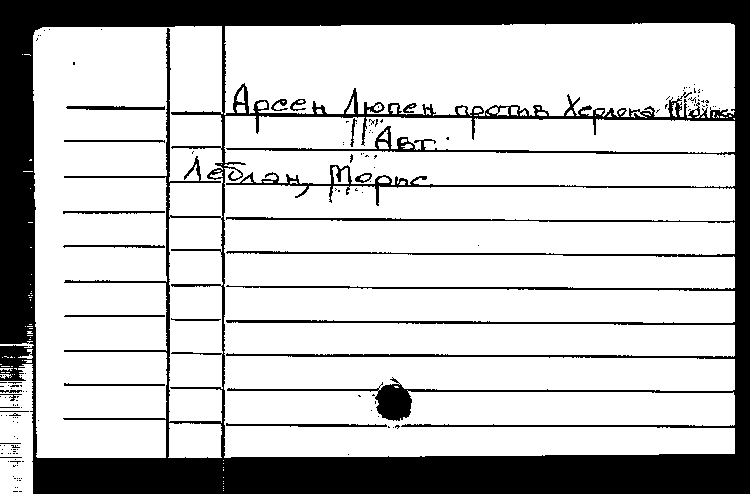 Арсен Люпен против Херлока
Авт.:
Леблан, Морис.